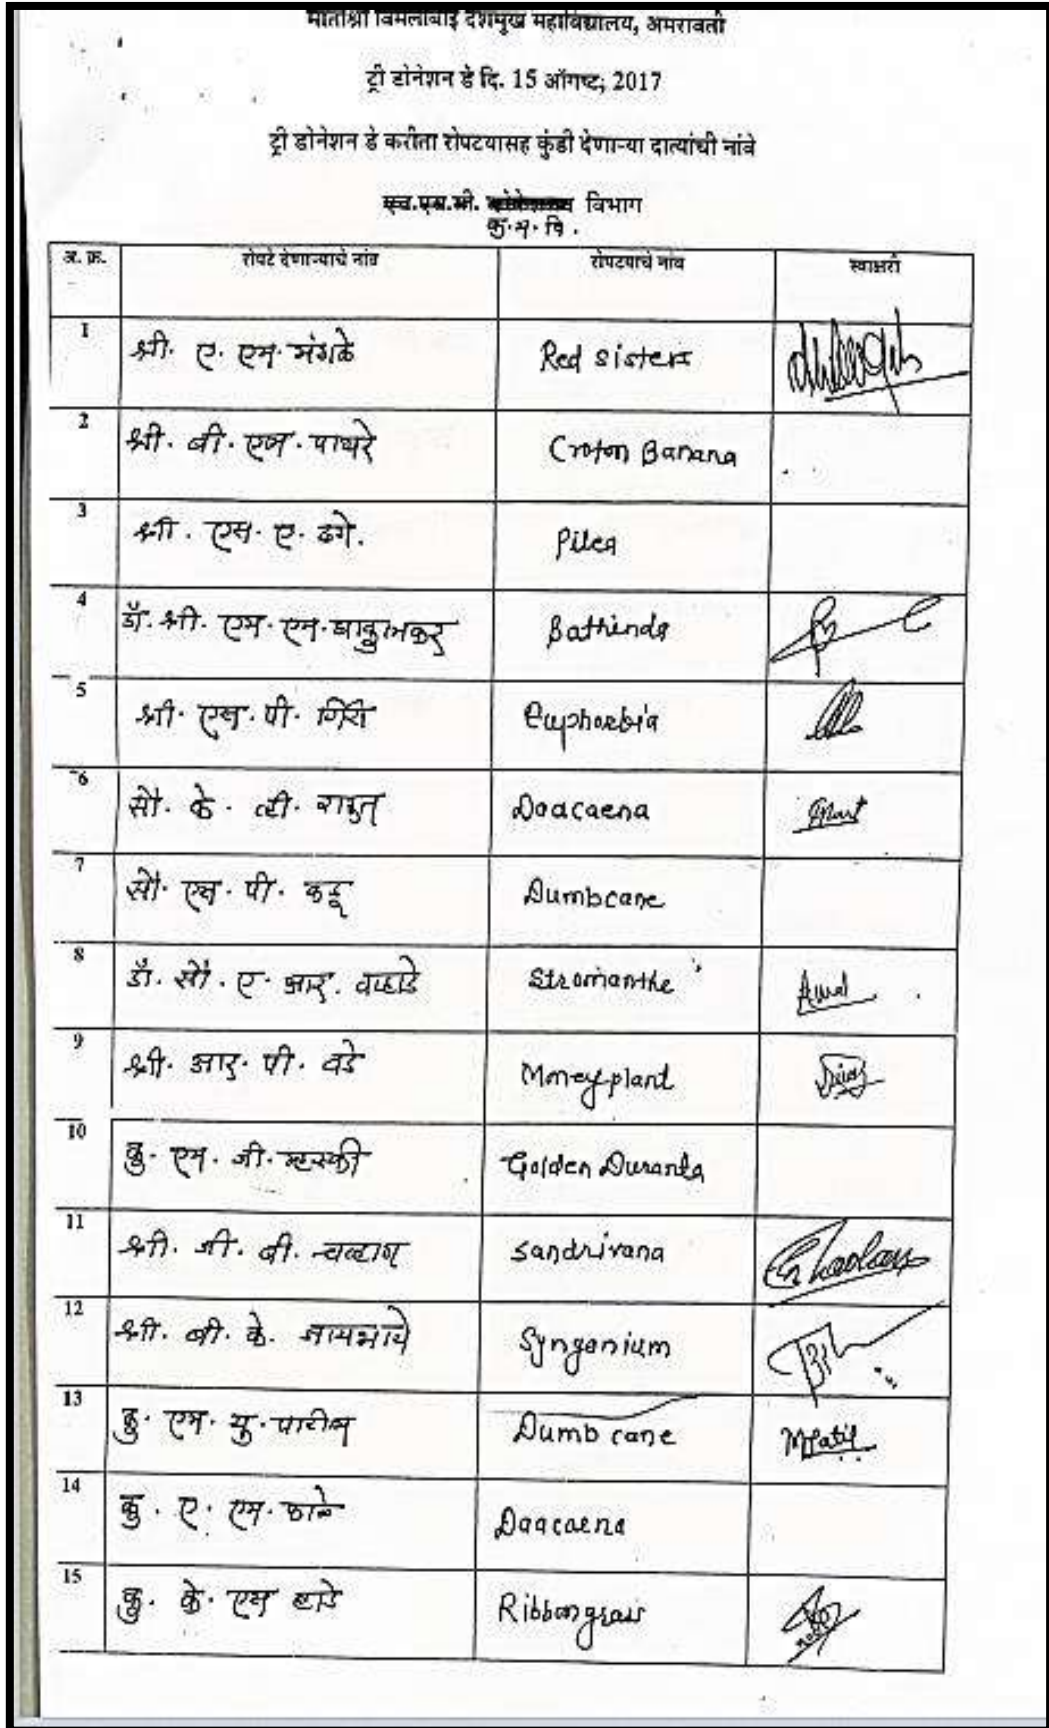 मातोश्री विमलाबाई देशमुख महाविद्यालय, अमरावती
ट्री डोनेशन डे दि. 15 ऑगष्ट, 2017
ट्री डोनेशन डे करीता रोपटयासह कुंडी देणाऱ्या दात्यांची नांवे
एच.एस.सी. विभाग
क.म.वि.
अ. क्र. रोपटे देणाऱ्याचे नांव रोपटयाचे नांव स्वाक्षरी
1 श्री. ए. एम. मंगळे Red Sisters
2 श्री. बी. एल. पाथरे Croton Banana
3 श्री. एस. ए. ढगे. Pilea
4 डॉ. श्री. एम. एन. Bathinda
5 श्री. एस. पी. गिरी Euphorbia
6 सौ. के. व्ही. राऊत Daacaena
7 सौ. एस. पी. कडू Dumbcane
8 डॉ. सौ. ए. आर. वऱ्हाडे Stromanthe
9 श्री. आर. पी. वडे Moneyplant
10 कु. एम. जी. म्हस्की Golden Duranta
11 श्री. जी. बी. चव्हाण Sandrivana Chavhan
12 श्री. बी. के. जायभाये Syngonium
13 कु. एम. यु. पाटील Dumb cane MPatil
14 कु. ए. एम. काळे Daacaena
15 कु. के. एस. Ribbongrass